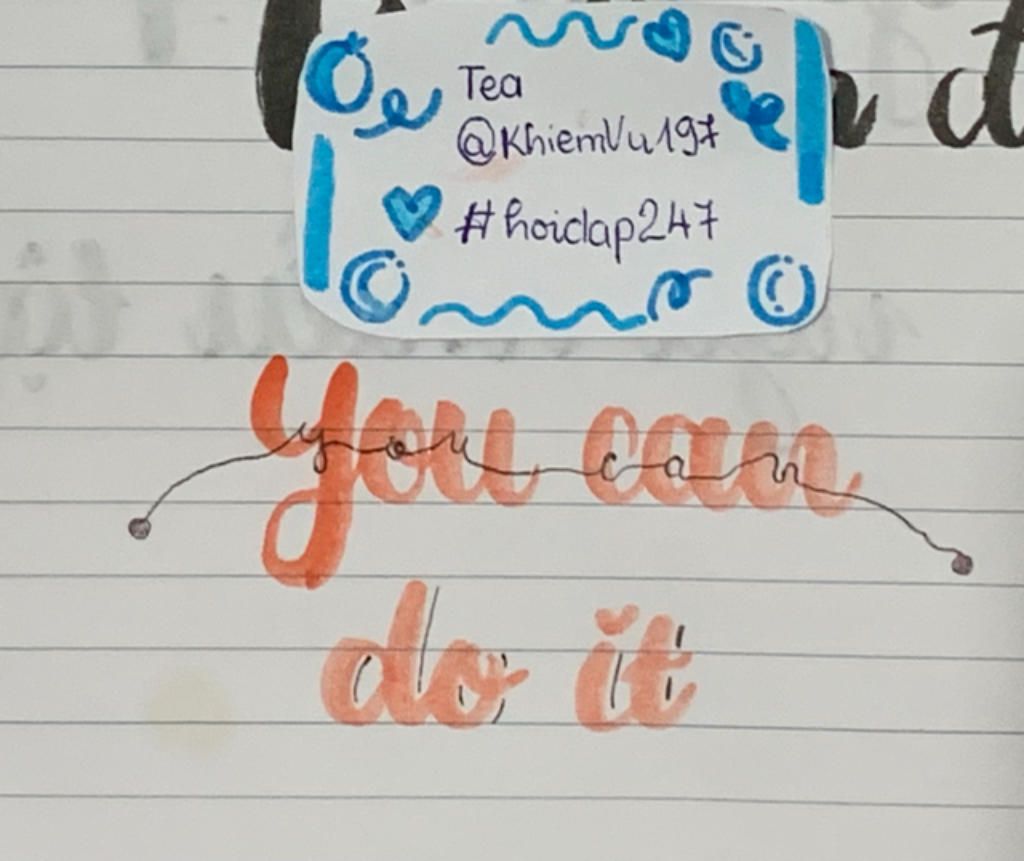 Tea
@KhiemVu197
#hoidap247
you can
you can
do it